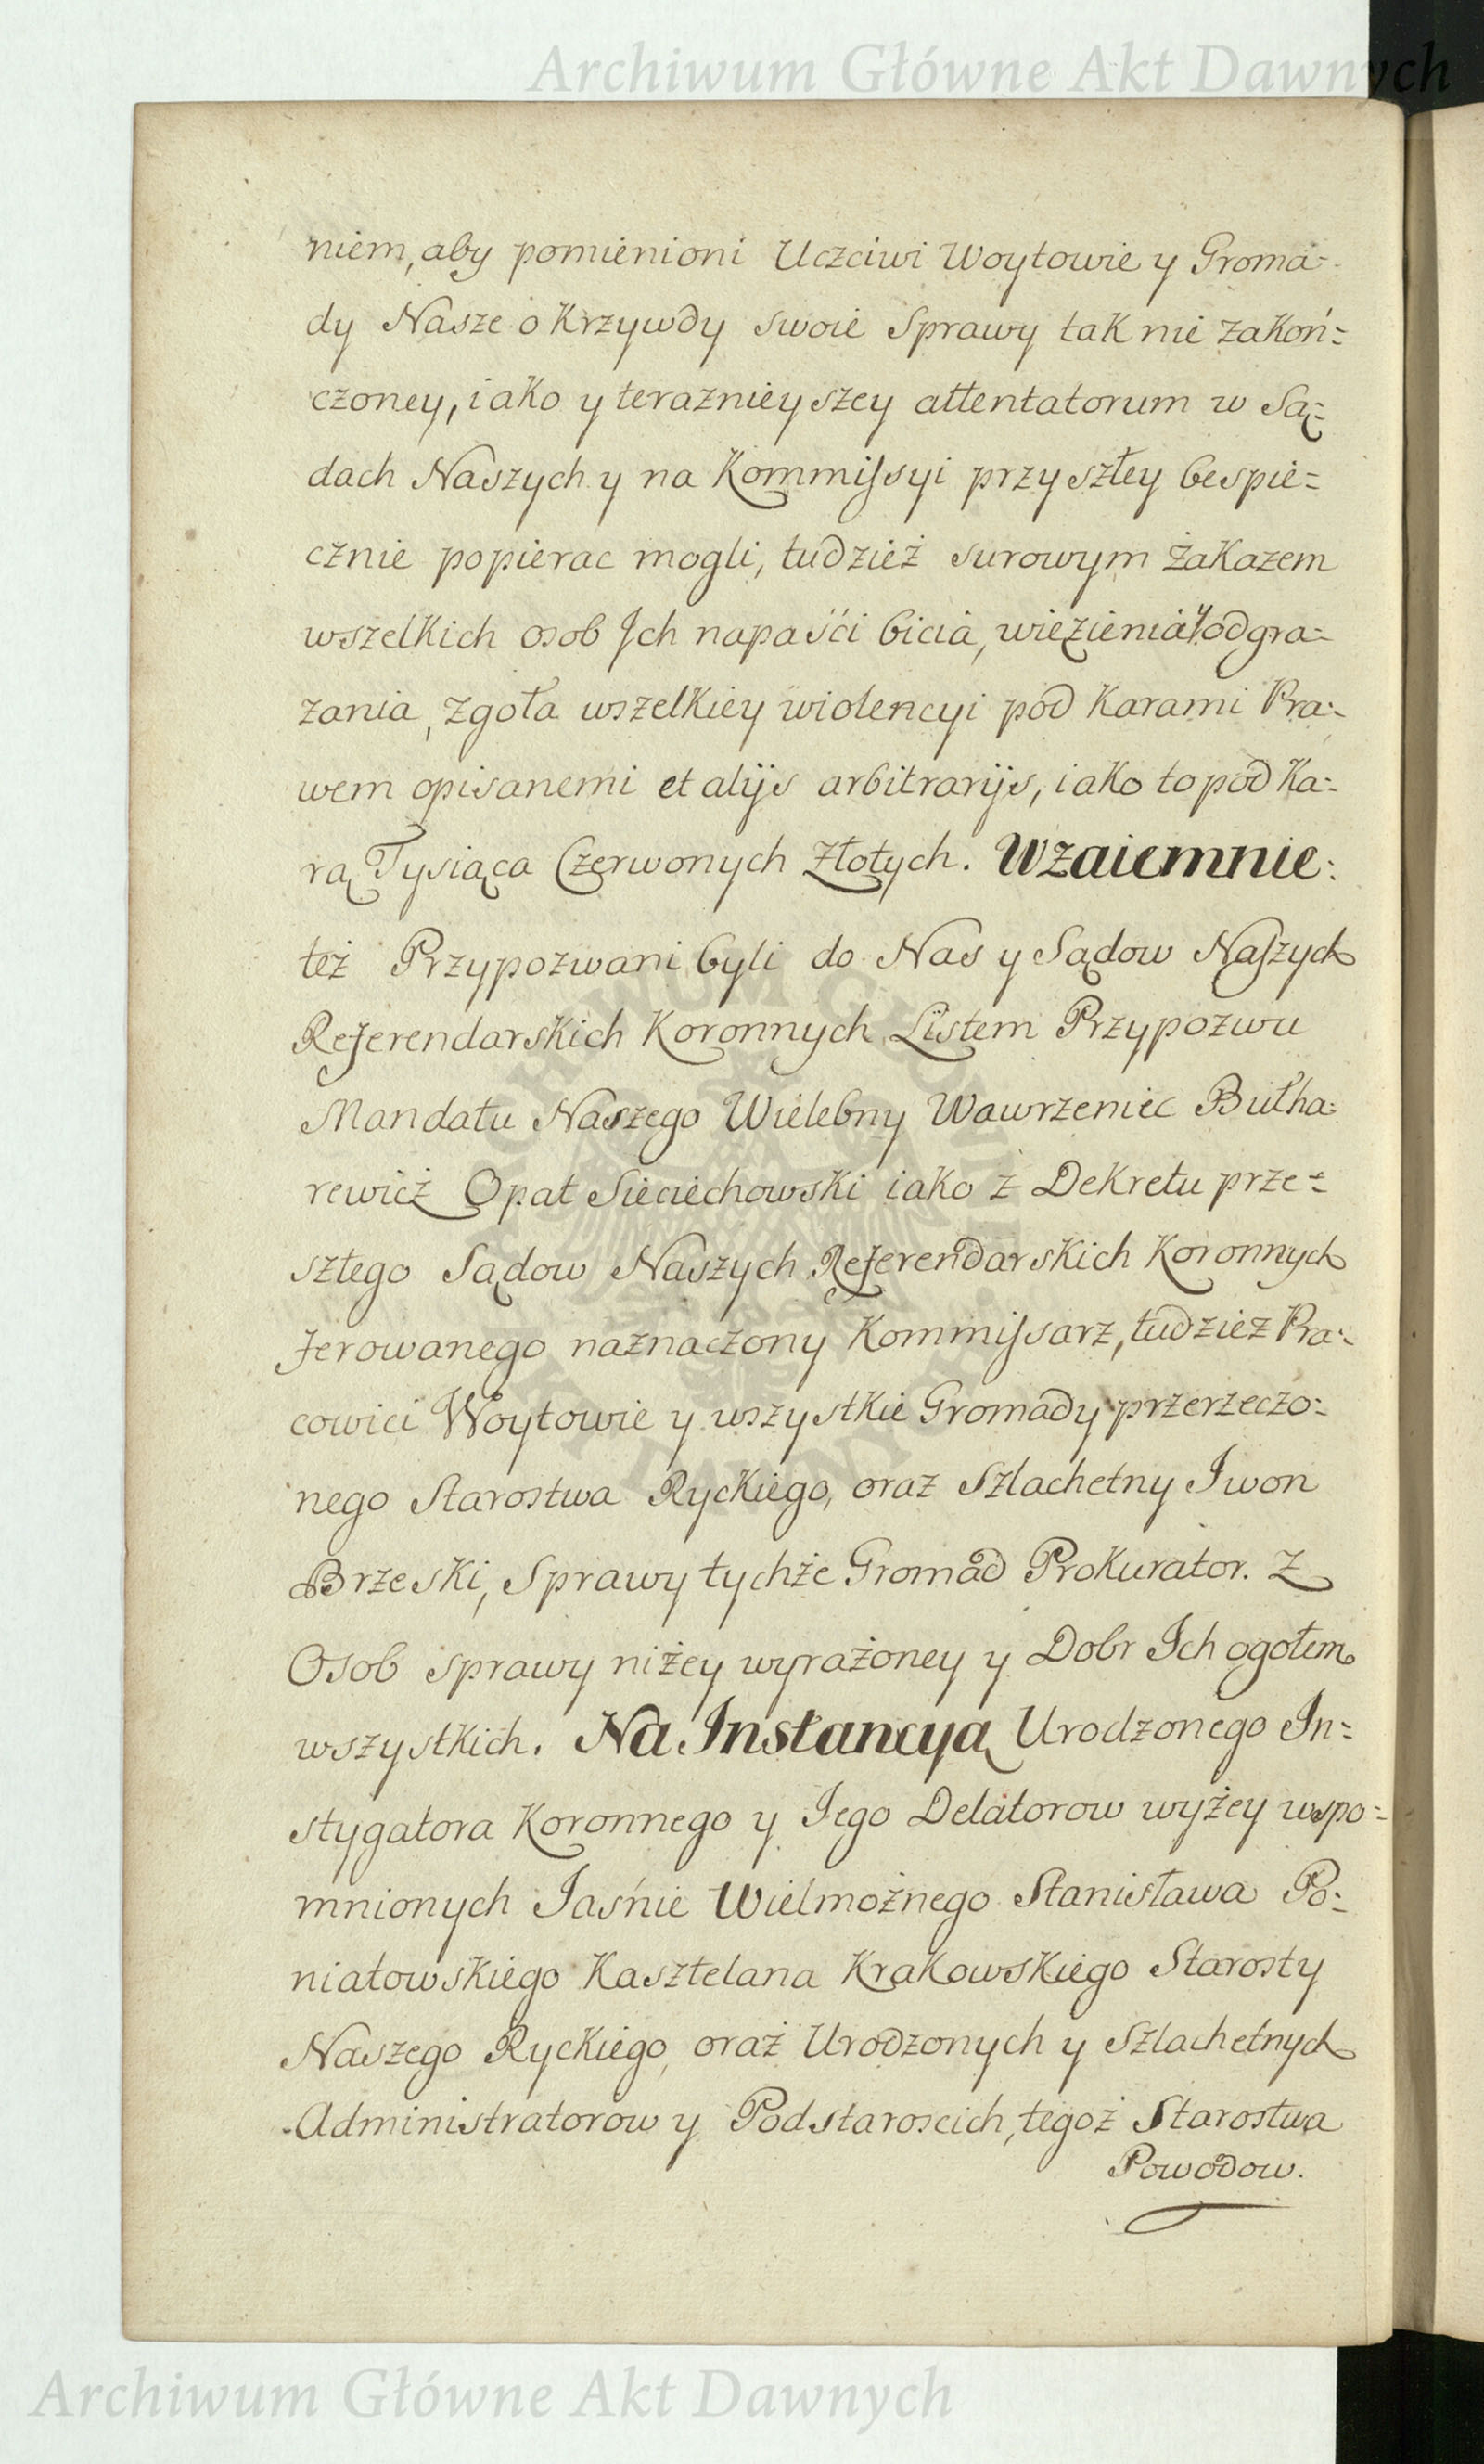 Archiwum Główne Akt Dawnych
niem, aby pomienioni Uczciwi Woytowie y Groma=
dy Nasze o Krzywdy swoie Sprawy tak nie zakoń=
czoney, iako y teraznieyszey attentatorum w Są=
dach Naszych y na Kommissyi przyszłey bespie=
cznie popierac mogli, tudzież surowym żakazem
wszelkich osob Ich napaści bicia, więzienia y odgra=
zania, zgoła wszelkiey wiolencyi pod Karami Pra=
wem opisanemi et alijs arbitrarijs, iako to pod Ka=
rą Tysiąca Czerwonych Złotych. Wzaiemnie=
też Przypozwani byli do Nas y Sądow Naszych
Referendarskich Koronnych Listem Przypozwu
Mandatu Naszego Wielebny Wawrzeniec Bułha=
rewicż Opat Sieciechowski iako z Dekretu prze=
szłego Sądow Naszych Referendarskich Koronnych
ferowanego naznaczony Kommissarz, tudzież Pra=
cowici Woytowie y wszystkie Gromady przerzeczo=
nego Starostwa Ryckiego, oraz Szlachetny Iwon
Brzeski, Sprawy tychże Gromad Prokurator. Z
Osob sprawy niżey wyrażoney y Dobr Ich ogołem
wszystkich. Na Instancyą Urodzonego In=
stygatora Koronnego y Iego Delatorow wyżey wspo=
mnionych Iaśnie Wielmożnego Stanisława Po=
niatowskiego Kasztelana Krakowskiego Starosty
Naszego Ryckiego, oraż Urodzonych y Szlachetnych
Administratorow y Podstaroscich, tegoż Starostwa
Powodow.
Archiwum Główne Akt Dawnych